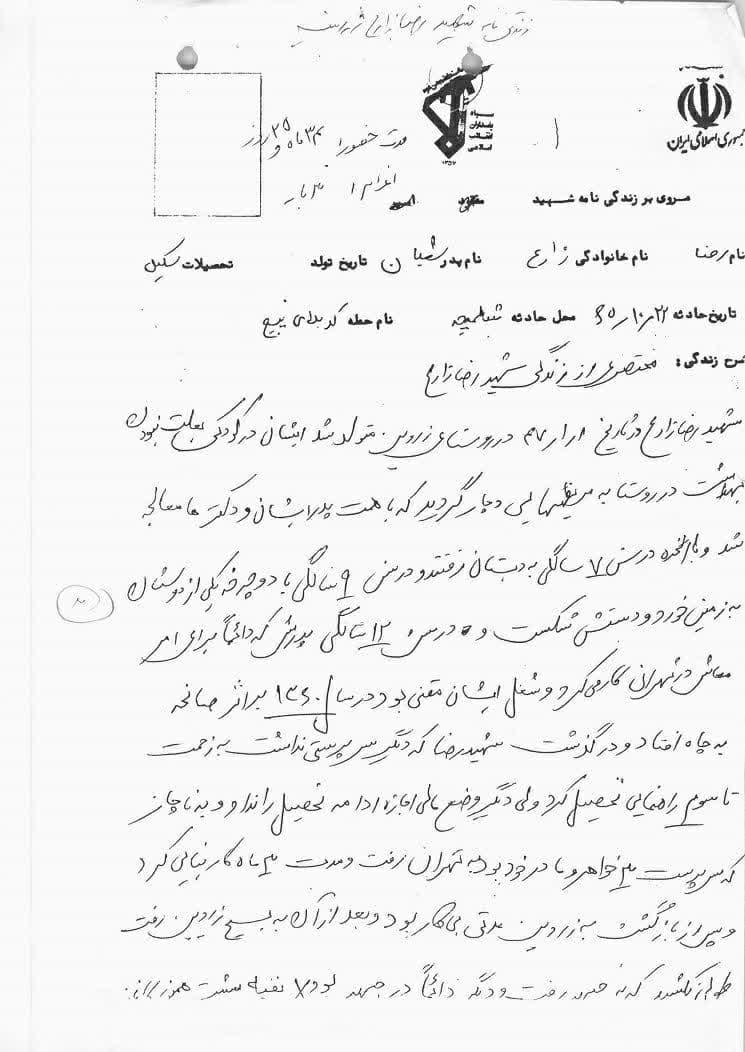 زندگی نامه شهید رضا زارع زروین
جمهوری اسلامی ایران
سپاه پاسداران انقلاب اسلامی
۱۳۵۷
۱
مدت حضور ۳۴ ماه و ۲۵ روز
اعزام ۳ بار
مروری بر زندگی نامه شهید
نام رضا نام خانوادگی زارع نام پدر تاریخ تولد تحصیلات سیکل
تاریخ حادثه ۲۲-۱۰-۶۵ محل حادثه شلمچه نام حمله کربلای پنج
شرح زندگی: مختصری از زندگی شهید رضا زارع
شهید رضا زارع در تاریخ در روستای زروین متولد شد ایشان در کودکی بعلت نبودن
بهداشت در روستا به مریضیهایی دچار گردید که با همت پدر ایشان و دکتر ها معالجه
شد و بالاخره در سن ۷ سالگی به دبستان رفتند و در سن ۹ سالگی با دوچرخه یکی از دوستان
به زمین خورد و دستش شکست و در سن ۱۲ سالگی پدرش که دائماً برای امر
معاش در تهران کار می کرد و شغل ایشان مقنی بود در سال ۱۳۶۰ بر اثر صانحه
به چاه افتاد و در گذشت شهید رضا که دیگر سرپرستی نداشت به زحمت
تا سوم راهنمایی تحصیل کرد ولی دیگر وضع مالی اجازه ادامه تحصیل را نداد و به ناچار
که سرپرست ۳ خواهر و مادر خود بود به تهران رفت و مدت ۳ ماه کار بنایی کرد
و پس از بازگشت به زروین مدتی بی کار بود و بعد از آن به بسیج زروین رفت
طولی نکشید که به جبهه رفت و دیگر دائماً در جبهه بود